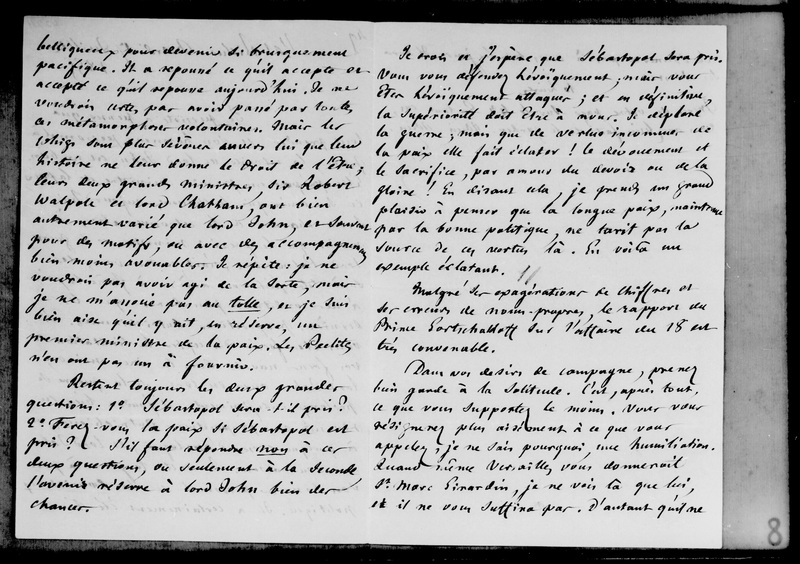 belliqueux pour devenir si brusquement
pacifique. Il a repoussé ce qu'il accepte et
accepté ce qu'il repousse aujourd'hui. Je ne
voudrois certes pas avoir passé par toutes
ces métamorphoses volontaires. Mais les
Whigs sont plus sévères envers lui que leur
histoire ne leur donne le droit de l'être;
leurs deux grands ministres, Sir Robert
Walpole et lord Chatham, ont bien
autrement varié que lord John, et souvent
pour des motifs, ou avec des accompagnemens
bien moins avouables. Je répète: je ne
voudrois pas avoir agi de la sorte, mais
je ne m'associe pas au tolle, et je suis
bien aise qu'il y ait, en réserve, un
premier ministre de la paix. Les Peelites
n'en ont pas un à fournir.
Restent toujours les deux grandes
questions: 1º Sébastopol sera-t-il pris?
2º Ferez-vous la paix si Sébastopol est
pris? S'il faut répondre non à ces
deux questions, ou seulement à la seconde
l'avenir réserve à lord John bien des
chances.
Je crois et j'espère que Sébastopol sera pris.
Vous vous défendez héroïquement; mais vous
êtes héroïquement attaqués; et en définitive,
la supériorité doit être à nous. Je déplore
la guerre; mais que de vertus inconnues de
la paix elle fait éclater! le dévouement et
le sacrifice, par amour du devoir ou de la
gloire! En disant cela, je prends un grand
plaisir à penser que la longue paix, maintenue
par la bonne politique, ne tarit pas la
source de ces vertus là. En voilà un
exemple éclatant.
Malgré ses exagérations de chiffres et
ses erreurs de noms-propres, le rapport du
Prince Gortschakoff sur l'affaire du 18 est
très convenable.
Dans vos desirs de campagne, prenez
bien garde à la solitude. C'est, après tout,
ce que vous supportez le moins. Vous vous
résignerez plus aisément à ce que vous
appelez, je ne sais pourquoi, une humiliation.
Quand même Versailles vous donneroit
St Marc Girardin, je ne vois là que lui,
et il ne vous suffira pas. D'autant qu'il ne
8